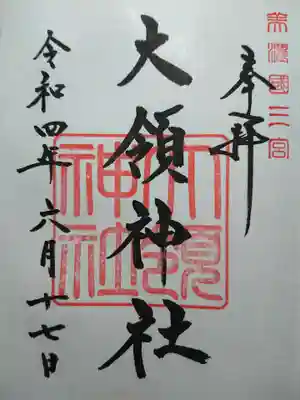 美濃國二宮
奉拝
大領神社
大領神社
令和四年六月十七日